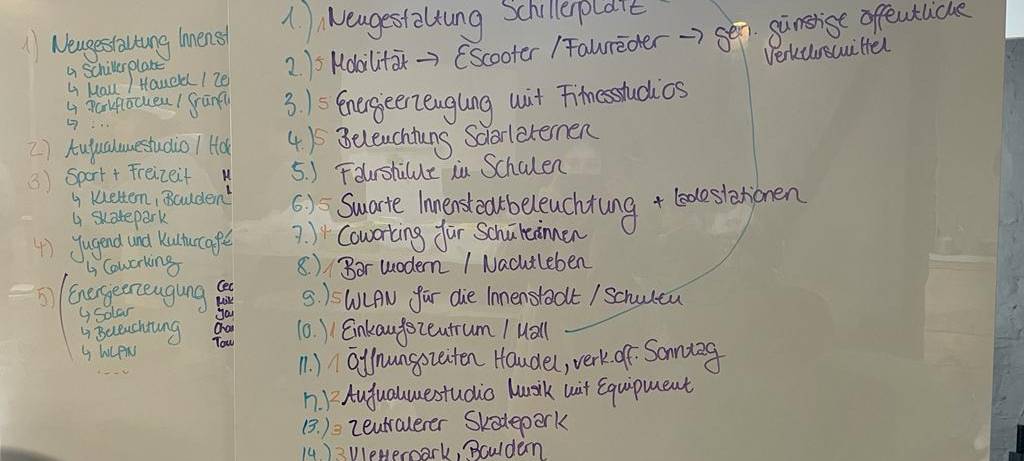 1) Neugestaltung Innenst
↳ Schillerplatz
↳ Mall / Handel / Ze
↳ Parkflächen / Grünfl
↳ ...
2) Aufnahmestudio / Ho
3) Sport + Freizeit
↳ Klettern, Bouldern
↳ Skatepark
4) Jugend und Kulturcafé
↳ Coworking
5) Energieerzeugung
↳ Solar
↳ Beleuchtung
↳ WLAN
....
1.) 1 Neugestaltung Schillerplatz
2.) 5 Mobilität → EScooter / Fahrräder → günstige öffentliche
Verkehrsmittel
3.) 5 Energieerzeugung mit Fitnessstudios
4.) 5 Beleuchtung Solarlaternen
5.) Fahrstühle in Schulen
6.) 5 Smarte Innenstadtbeleuchtung + Ladestationen
7.) 4 Coworking für Schülerinnen
8.) 1 Bar modern / Nachtleben
9.) 5 WLAN für die Innenstadt / Schulen
10.) 1 Einkaufszentrum / Mall
11.) 1 Öffnungszeiten Handel, verk.off. Sonntag
12.) 2 Aufnahmestudio Musik mit Equipment
13.) 3 Zentralerer Skatepark
14.) 3 Kletterpark, Bouldern